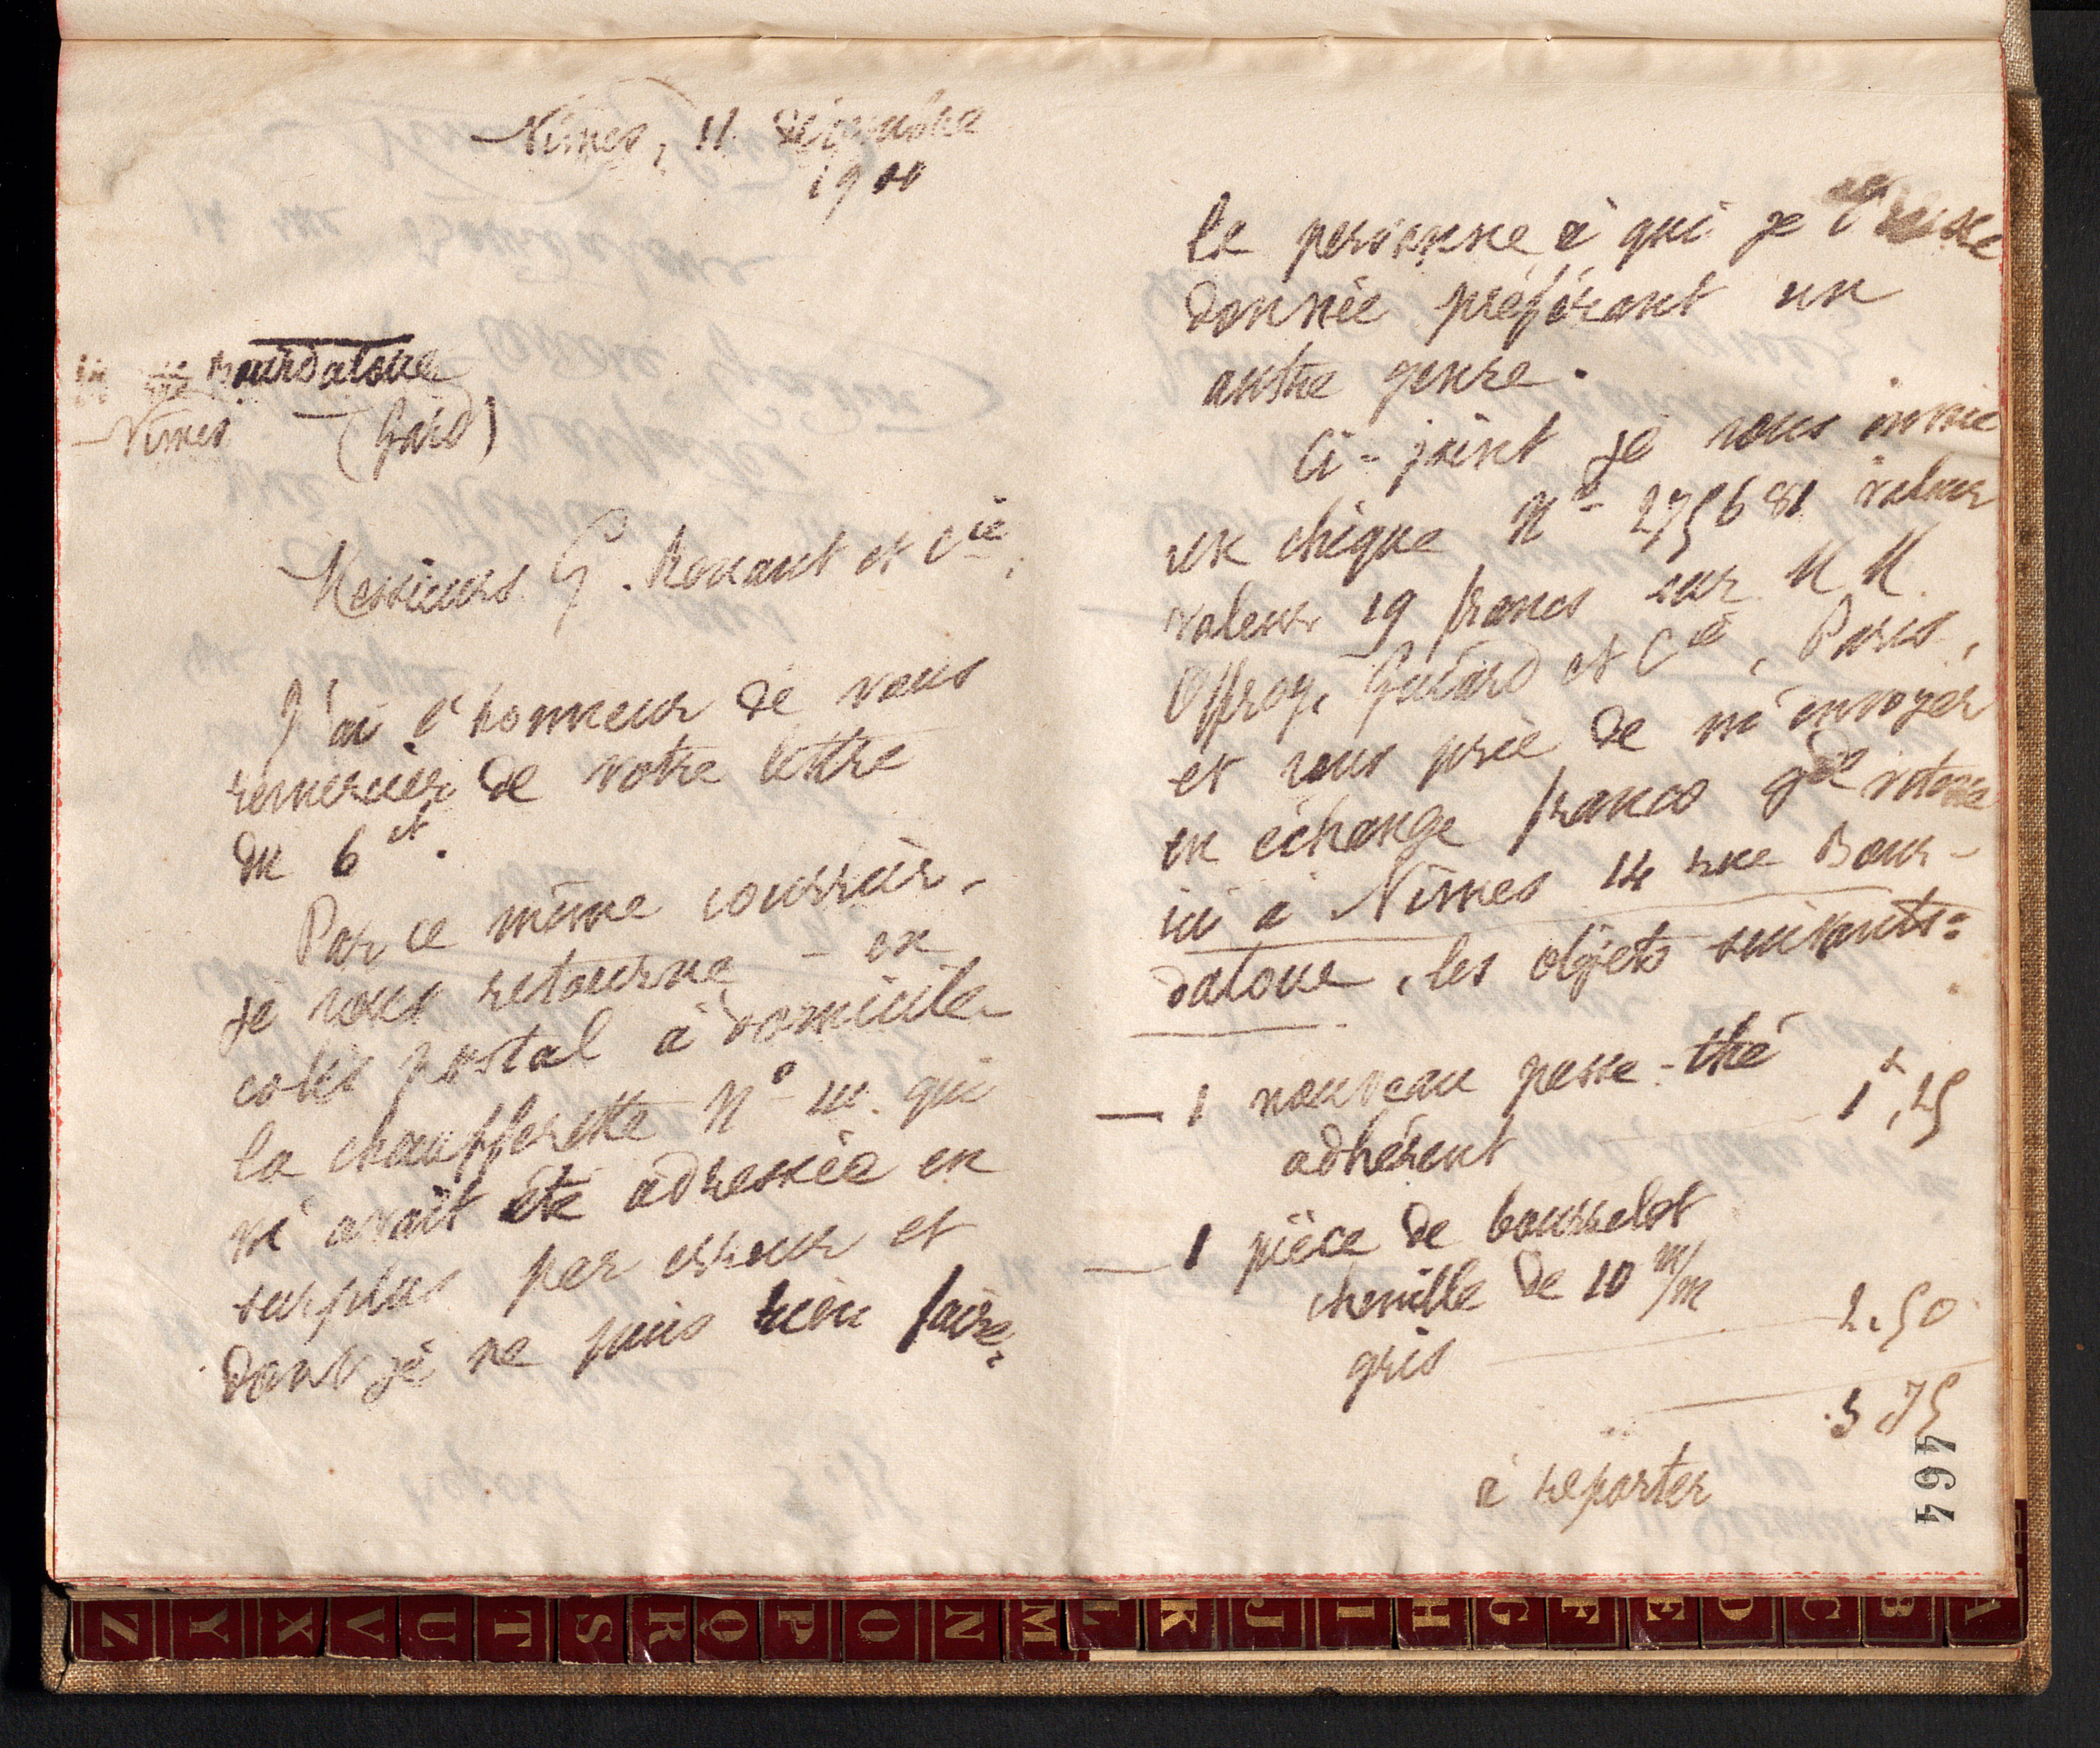 Nîmes, 11 décembre
1900
14 rue Bourdaloue
Nîmes (Gard)
Messieurs G. Renault et Cie,
J'ai l'honneur de vous
remercier de votre lettre
du 6 ct.
Par ce même courrier,
je vous retourne - en
colis postal à domicile
la chaufferette No qui
m'avait été adressée en
surplus par erreur et
dont je ne puis rien faire,
la personne à qui je l'eusse
donnée préférant un
autre genre.
Ci-joint je vous envoie
un chèque No 275681 valeur
valeur 19 francs sur MM.
Offroy, Guiard et Cie, Paris,
et vous prie de m'envoyer
en échange franco gare
ici à Nîmes 14 rue Bour-
daloue, les objets suivants:
— 1 nouveau passe-thé
adhérent 1f,25
— 1 pièce de bourrelet
chenille de 10 m/m
gris 2.50
3 75
à reporter
464
Z Y X V U T S R Q P O N M L K J I H G F E D C B A